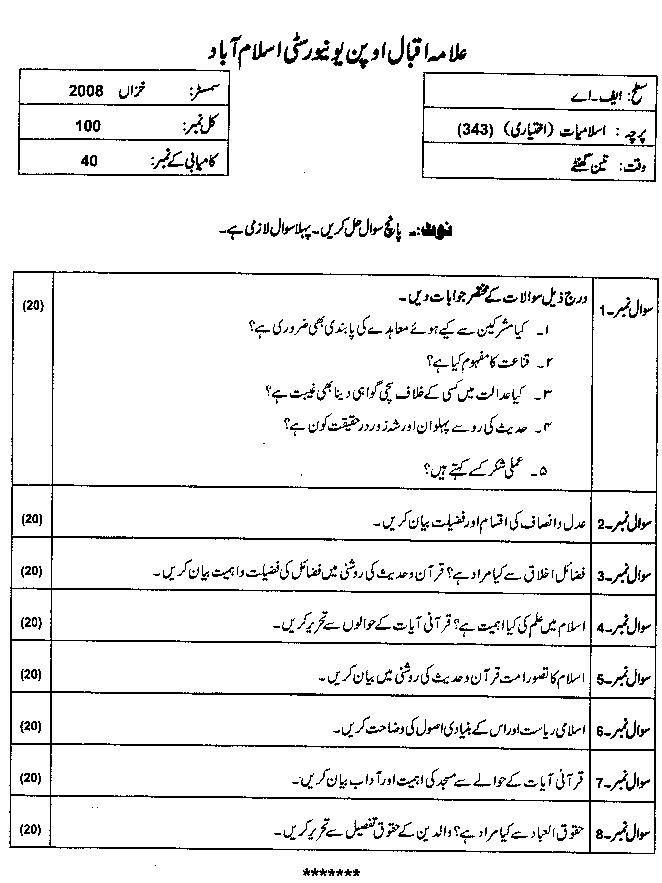 علامہ اقبال اوپن یونیورسٹی اسلام آباد
سطح: ایف۔اے
پرچہ: اسلامیات (اختیاری) (343)
وقت: تین گھنٹے
سمسٹر: خزاں 2008
کل نمبر: 100
کامیابی کے نمبر: 40
نوٹ:۔ پانچ سوال حل کریں۔ پہلا سوال لازمی ہے۔
سوال نمبر۔1 درج ذیل سوالات کے مختصر جوابات دیں۔ (20)
۱۔ کیا مشرکین سے کیے ہوئے معاہدے کی پابندی بھی ضروری ہے؟
۲۔ قناعت کا مفہوم کیا ہے؟
۳۔ کیا عدالت میں کسی کے خلاف سچی گواہی دینا بھی غیبت ہے؟
۴۔ حدیث کی رو سے پہلوان اور شہ زور در حقیقت کون ہے؟
۵۔ عملی شکر کسے کہتے ہیں؟
سوال نمبر۔2 عدل وانصاف کی اقسام اور فضیلت بیان کریں۔ (20)
سوال نمبر۔3 فضائل اخلاق سے کیا مراد ہے؟ قرآن وحدیث کی روشنی میں فضائل کی فضیلت واہمیت بیان کریں۔ (20)
سوال نمبر۔4 اسلام میں علم کی کیا اہمیت ہے؟ قرآنی آیات کے حوالوں سے تحریر کریں۔ (20)
سوال نمبر۔5 اسلام کا تصور امت قرآن وحدیث کی روشنی میں بیان کریں۔ (20)
سوال نمبر۔6 اسلامی ریاست اور اس کے بنیادی اصول کی وضاحت کریں۔ (20)
سوال نمبر۔7 قرآنی آیات کے حوالے سے مسجد کی اہمیت اور آداب بیان کریں۔ (20)
سوال نمبر۔8 حقوق العباد سے کیا مراد ہے؟ والدین کے حقوق تفصیل سے تحریر کریں۔ (20)
*******